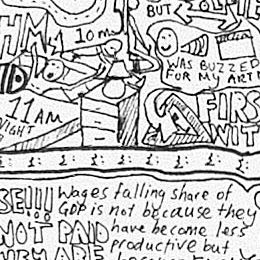 BUT
HM
10 m
WAS BUZZED
FOR MY ART
11AM
NIGHT
FIRS
WIT
SE!!! Wages falling share of
GDP is not because they
NOT PAID have become less
productive but